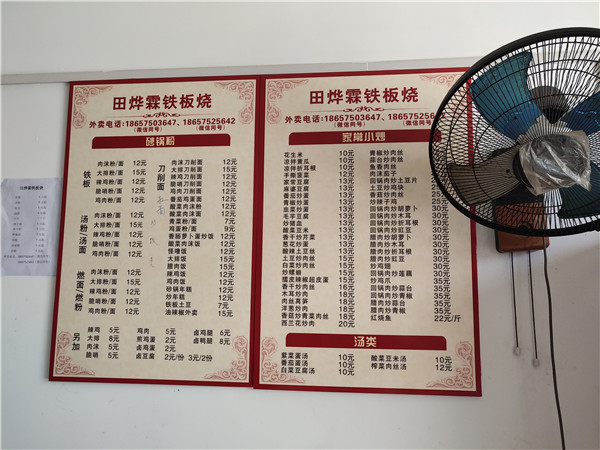 田烨霖铁板烧
外卖电话:18657503647、18657525642
(微信同号)
砂锅粉
铁板
肉沫粉/面 12元
大排粉/面 15元
辣鸡粉/面 12元
脆哨粉/面 12元
鸡肉粉/面 12元
汤粉/汤面
肉沫粉/面 12元
大排粉/面 15元
辣鸡粉/面 12元
脆哨粉/面 12元
鸡肉粉/面 12元
燃面/燃粉
肉沫粉/面 12元
大排粉/面 15元
辣鸡粉/面 12元
脆哨粉/面 12元
鸡肉粉/面 12元
刀削面
肉沫刀削面 12元
大排刀削面 15元
辣鸡刀削面 12元
脆哨刀削面 12元
鸡肉刀削面 12元
番茄鸡蛋面 12元
酸菜肉沫面 12元
酸菜肉沫粉 12元
鸡蛋粉/面 9元
香肠萝卜蛋炒饭 12元
酸菜肉沫饭 12元
怪噜饭 12元
大排饭 15元
腊肉饭 15元
辣鸡饭 15元
鸡肉饭 15元
砂锅年糕 12元
炒年糕 12元
铁板土豆 7元
油辣椒外卖 15元
另加
辣鸡 5元 鸡肉 5元 卤鸡腿 6元
大排 8元 煎鸡蛋 2元 卤鸭腿 8元
肉沫 5元 卤鸡蛋 2元
脆哨 5元 卤豆腐 2元/份 3元/2份
田烨霖铁板烧
外卖电话:18657503647、186575256
(微信同号)
家常小炒
花生米 10元
凉拌黄瓜 10元
凉拌折耳根 12元
手撕豆腐 12元
家常豆腐 13元
麻婆豆腐 13元
番茄炒蛋 13元
青椒炒蛋 13元
韭菜炒蛋 13元
毛芋豆腐 13元
炒猪血 12元
麻辣土豆丝 12元
春菜 12元
香干炒芹菜 12元
葱花炒蛋 12元
酸辣土豆丝 12元
土豆炒肉丝 15元
白菜炒肉丝 15元
炒螺蛳 15元
擂皮辣椒皮蛋 15元
香干炒肉丝 15元
木耳炒肉 15元
肉丝莴笋 15元
洋葱炒肉 15元
香菇炒青菜肉丝 18元
西兰花炒肉 20元
青椒炒肉丝
蒜台炒肉丝
鱼香肉丝
肉沫茄子
回锅肉炒土豆片
土豆炒鸡块
炒辣子鸡
回锅肉炒木耳
回锅肉炒折耳根
腊肉炒蒜台
回锅肉炒青椒
回锅肉炒胡萝卜
回锅肉炒折耳根 30元
腊肉炒胡萝卜 30元
腊肉炒折耳根 30元
炒鸡翅 35元
回锅肉炒莲藕 30元
炒鸡爪 35元
回锅肉炒蒜台 35元
炒鸡肉 35元
腊肉炒蒜台 35元
腊肉炒青椒 35元
红烧鱼 22元/斤
汤类
紫菜蛋汤 10元 酸菜豆米汤 10元
番茄蛋汤 10元 榨菜肉丝汤 12元
白菜豆腐汤 10元